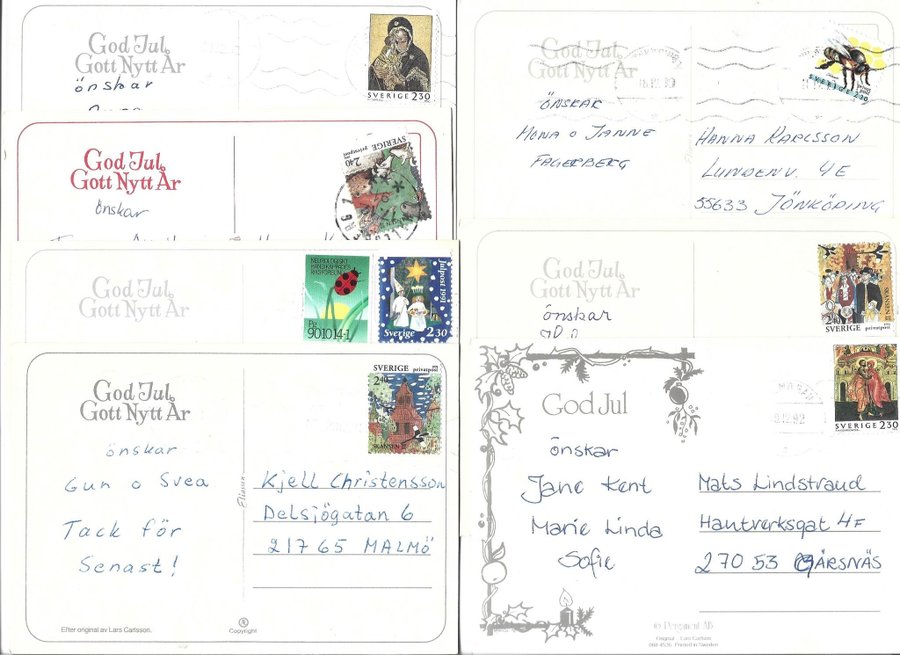 God Jul,
Gott Nytt År
önskar
SVERIGE 2.30
God Jul,
Gott Nytt År
önskar
SVERIGE
privatpost
2.40
God Jul,
Gott Nytt År
NEUROLOGISKT
HANDIKAPPADES
RIKSFÖRBUND
Pg
901014-1
Julpost 1991
Sverige 2.30
God Jul,
Gott Nytt År
önskar
Gun o Svea
Tack för
Senast!
SVERIGE privatpost
2.40
SKANSEN
Kjell Christensson
Delsjögatan 6
217 65 MALMÖ
Efter original av Lars Carlsson.
Copyright
God Jul,
Gott Nytt År
ÖNSKAR
MONA o JANNE
FAGERBERG
SVERIGE
HANNA KARLSSON
LUNDENV. 4E
55633 JÖNKÖPING
God Jul,
Gott Nytt År
önskar
SKANSEN
2.40
SVERIGE privatpost
God Jul
önskar
Jane Kent
Marie Linda
Sofie
SVERIGE 2.30
Mats Lindstraud
Hantverksgat 4F
270 53 GÄRSNÄS
© Pergament AB
Original Lars Carlsson
Printed in Sweden